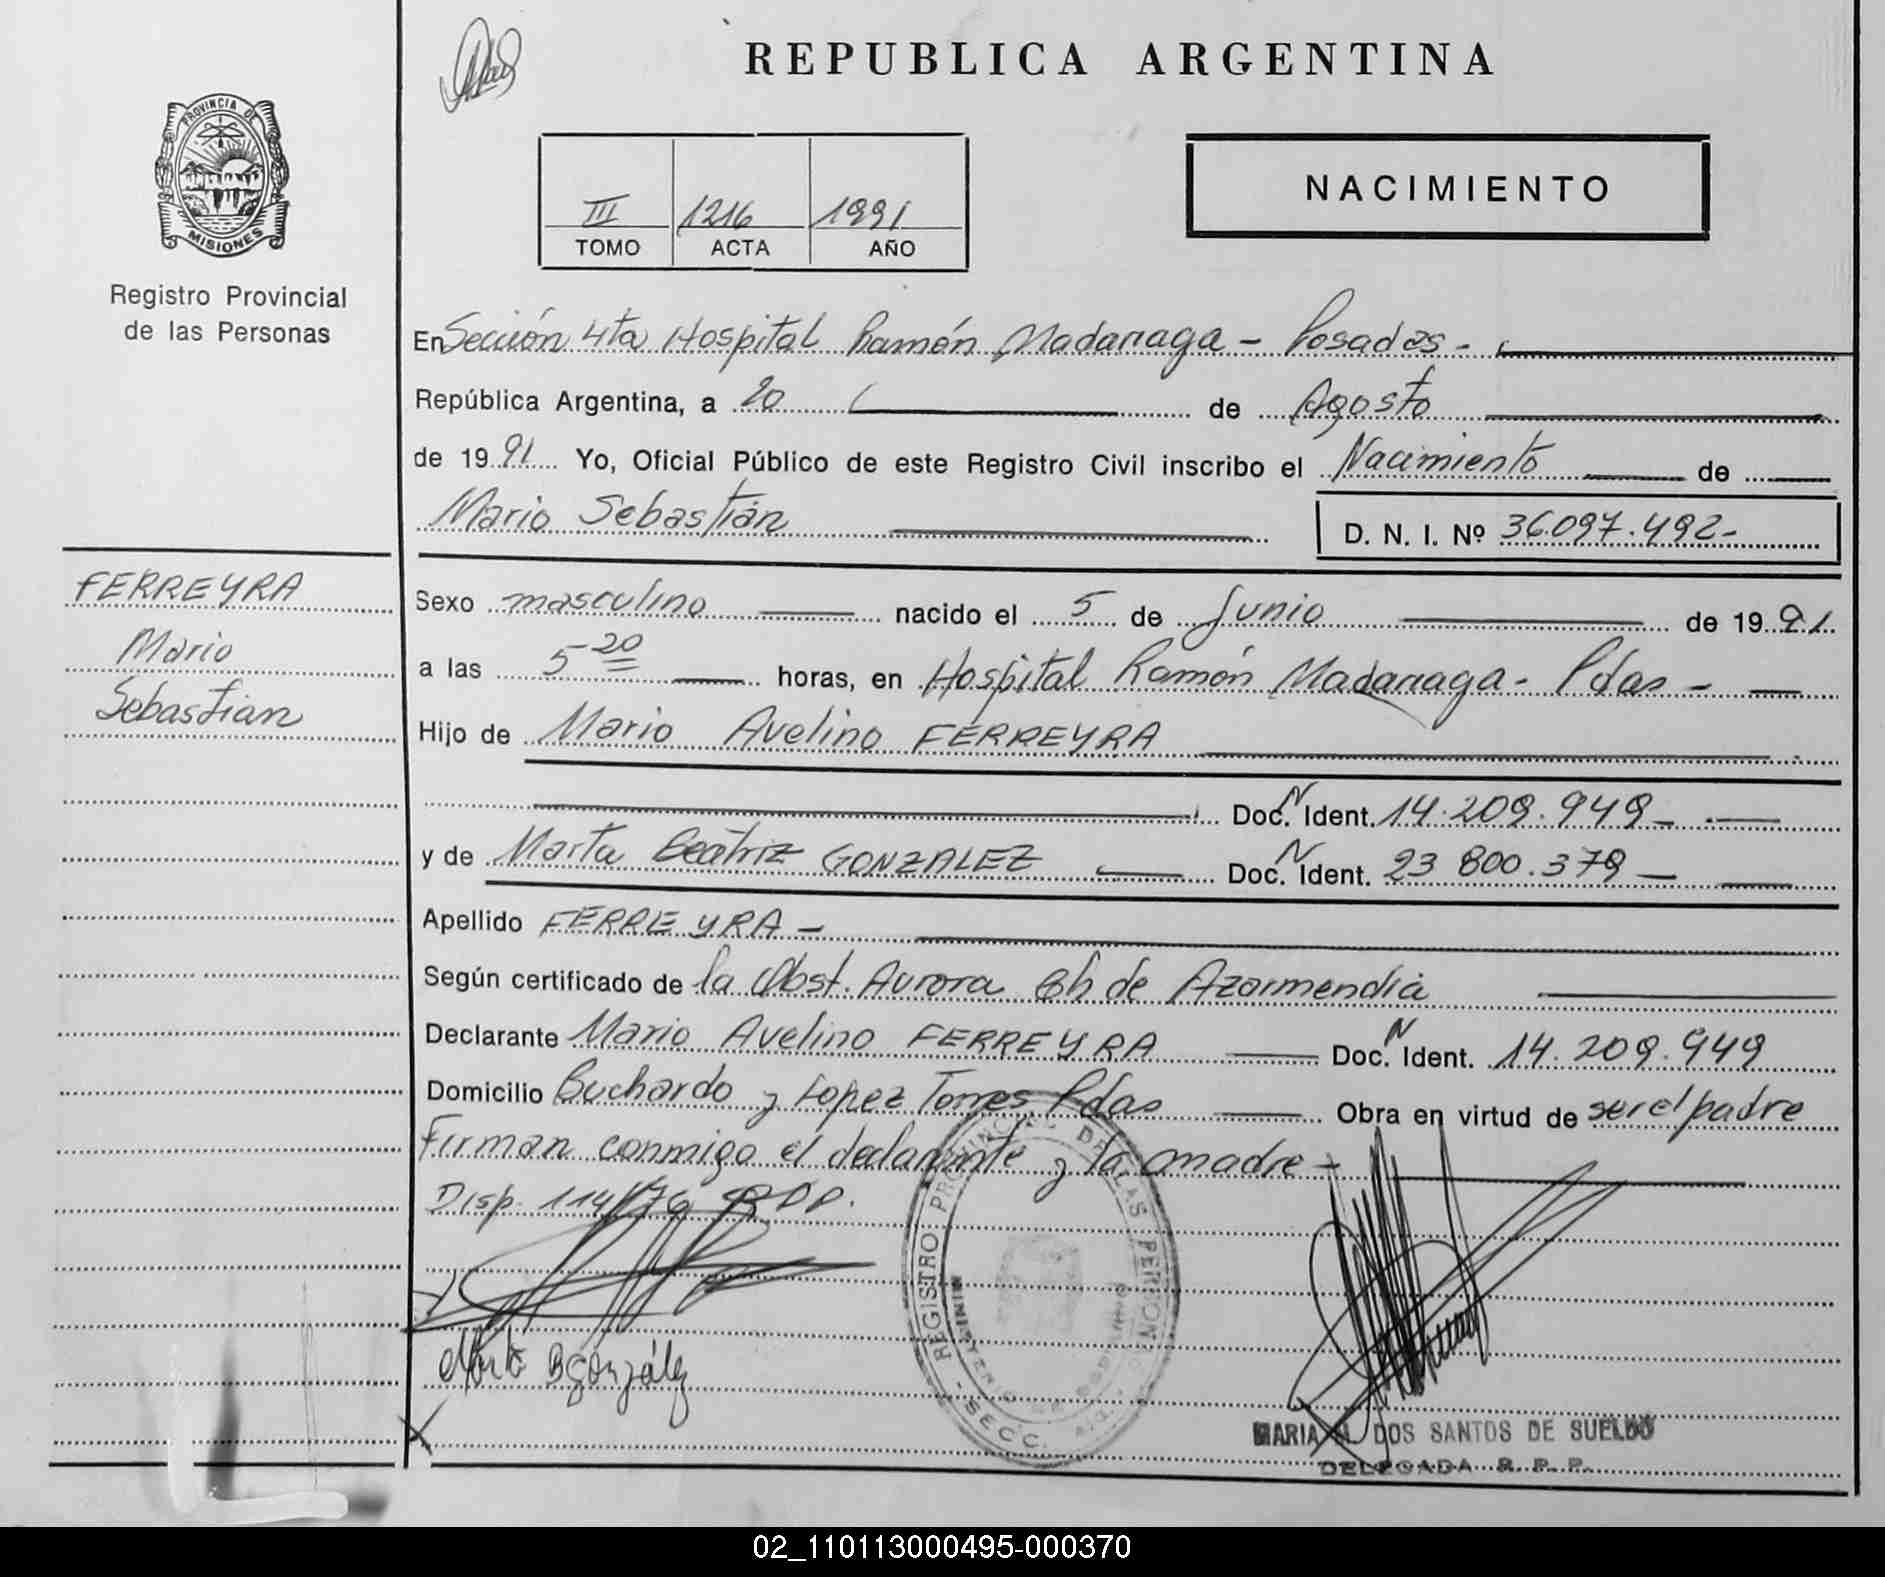 REPUBLICA ARGENTINA
PROVINCIA DE
MISIONES
Registro Provincial
de las Personas
III 1216 1991
TOMO ACTA AÑO
NACIMIENTO
En Sección 4ta Hospital Ramón Madariaga - Posadas -
República Argentina, a 20 de Agosto
de 1991 Yo, Oficial Público de este Registro Civil inscribo el Nacimiento de
Mario Sebastián
D. N. I. Nº 36.097.492-
FERREYRA
Mario
Sebastian
Sexo masculino nacido el 5 de Junio de 1991
a las 5-20 horas, en Hospital Ramón Madariaga - Pdas -
Hijo de Mario Avelino FERREYRA
Doc. N Ident. 14.209.949-
y de Marta Beatriz GONZALEZ Doc. N Ident. 23 800.379-
Apellido FERREYRA -
Según certificado de la Obst. Aurora de Azormendia
Declarante Mario Avelino FERREYRA Doc. N Ident. 14.209.949
Domicilio Buchardo y Lopez Torres Pdas Obra en virtud de ser el padre
Firman conmigo el declarante y la madre -
Disp. 114/76
REGISTRO PROVINCIAL DE LAS PERSONAS
MINISTERIO DE GOBIERNO
SECC.
Marta B González
MARIA DOS SANTOS DE SUELDO
DELEGADA R. P. P.
02_110113000495-000370